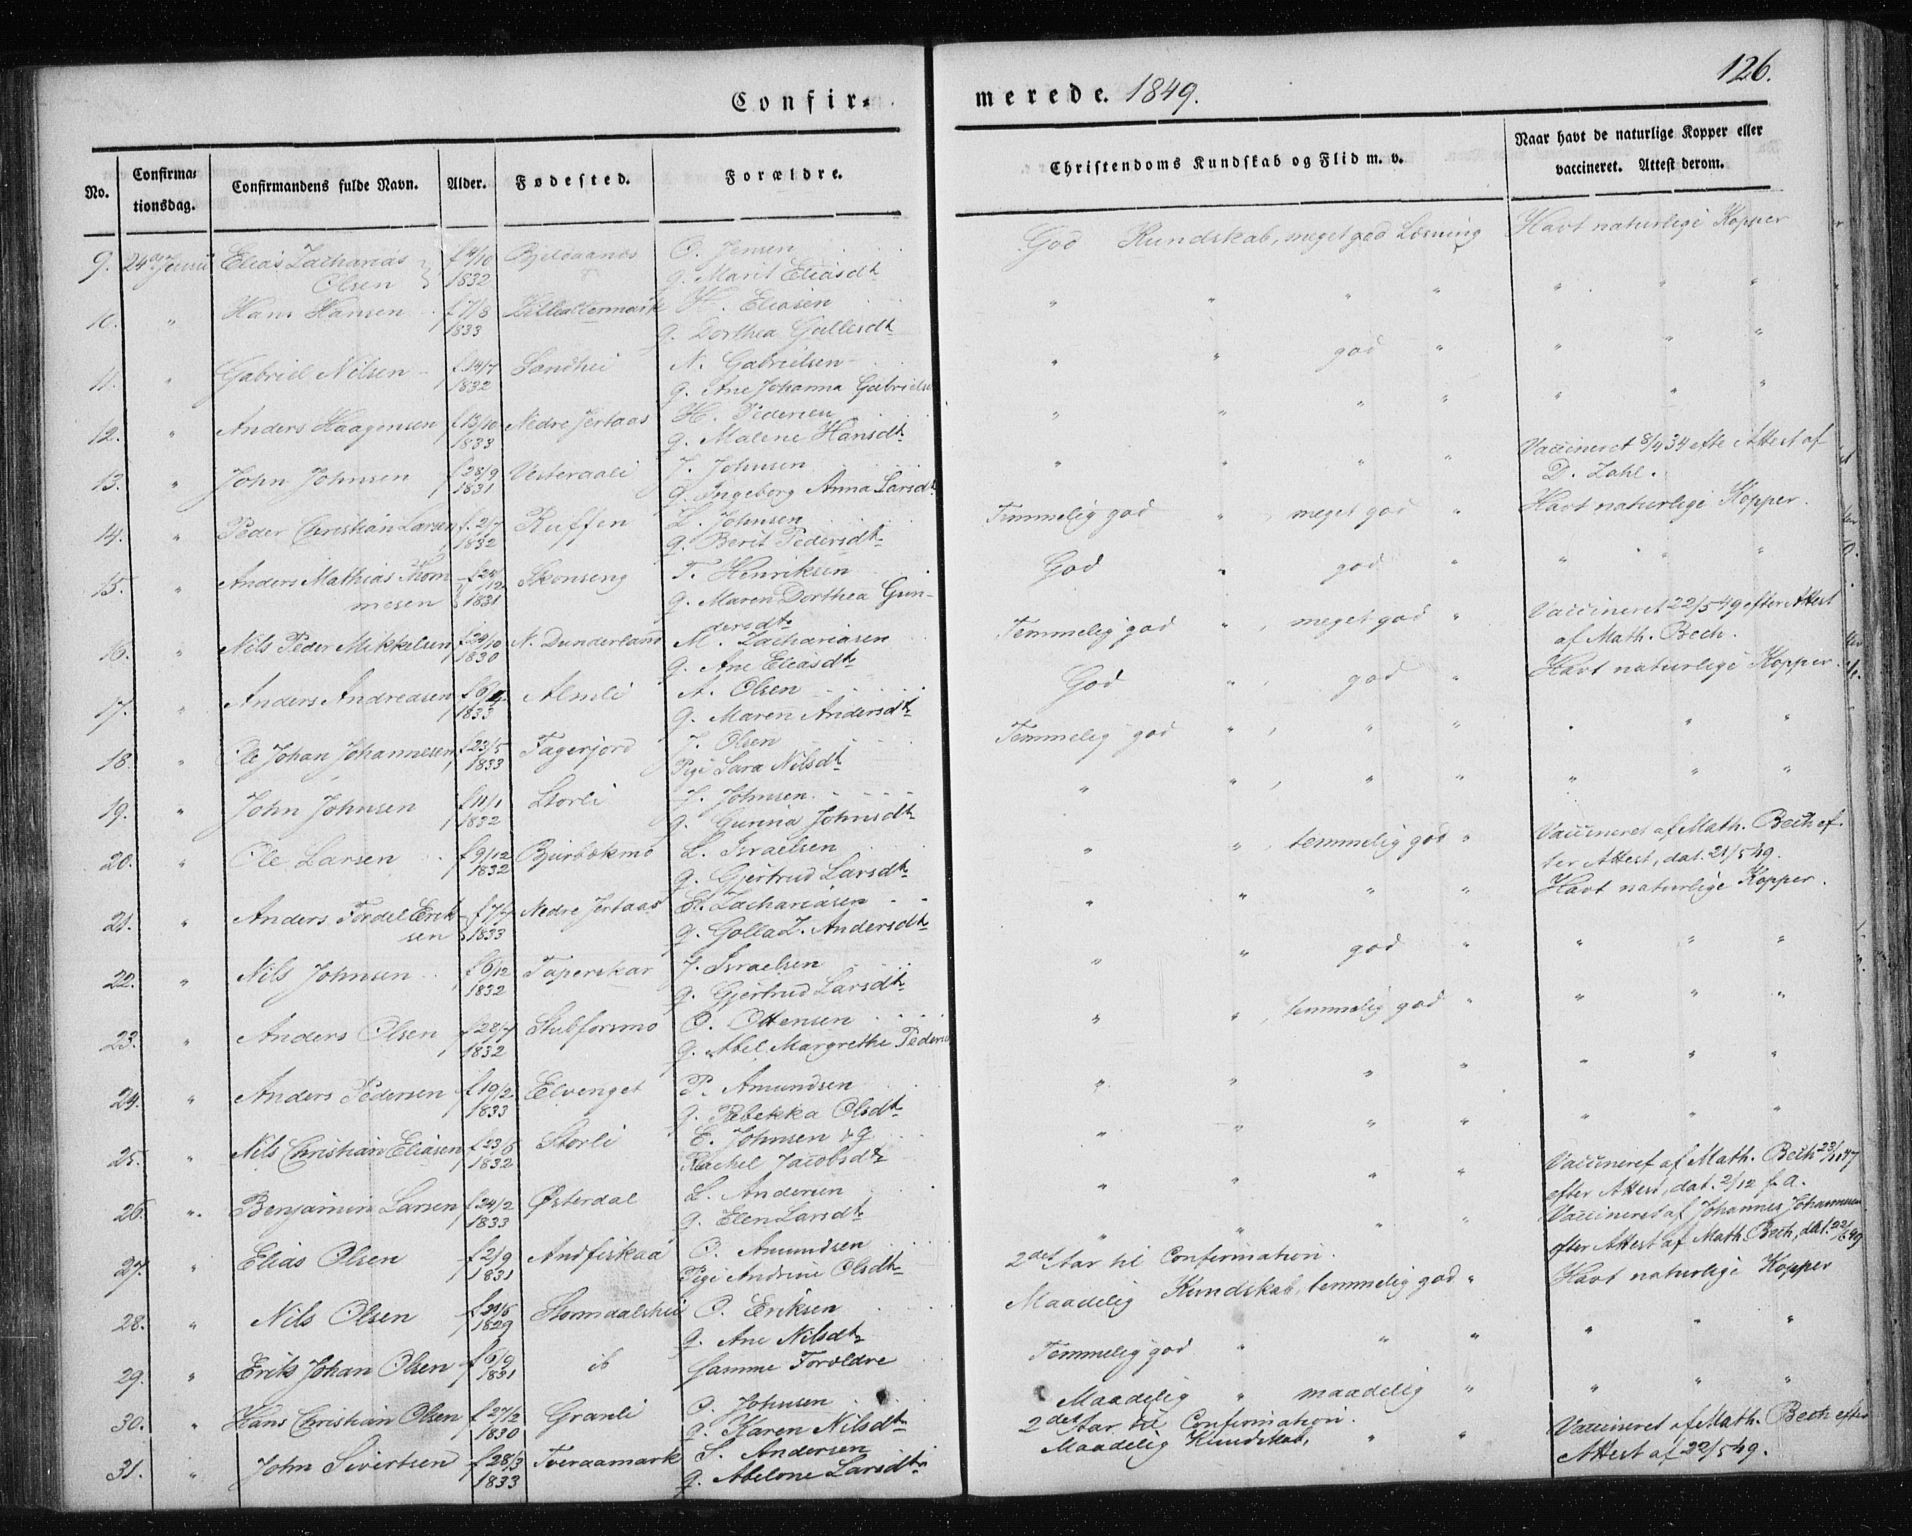 126.
Confir- merede. 1849.
No. Confirma- tionsdag. Confirmandens fulde Navn. Alder. Fødested. Forældre. Christendoms Kundskab og Flid m. v. Naar havt de naturlige Kopper eller vaccineret. Attest derom.
9. 24de Junii Elias Zacharias f 4/10 Bjeldaanes O. Jensen God Kundskab, meget god Læsning Havt naturlige Kopper
Olsen 1832 q. Marit Eliasdt
10. " Hans Hansen f 7/8 Lilleattermark H. Eliasen " " " " " " "
1833 q. Dorthea Gullesdt
11. " Gabriel Nilsen f 14/7 Sandhei N. Gabrielsen " " god " " " "
1832 q. Ane Johanna Gabriels
12. " Anders Haagensen f 13/10 Nedre Jertaas H. Pedersen " " " " " " "
1833 q. Malene Hansdt
13. " John Johnsen f 28/9 Vesteraali J. Johnsen " " " " Vaccineret 8/4 34 efte Attest af
1831 q. Ingeborg Anna Larsdt D. Zahl.
14. " Peder Christian Larsen f. 2/7 Ruffen L. Johnsen Temmelig god " , meget god " Havt naturlige Kopper.
1832 q. Berit Pedersdt
15. " Anders Mathias Thom f 24/12 Skonseng T. Henriksen God " god " " " " "
mesen 1831 q. Maren Dorthea Gun-
dersdt
16. " Nils Peder Mikkelsen f 24/10 N. Dunderland M. Zachariasen Temmelig god " , meget god " Vaccineret 22/5 49 efter Attest
1830 q. Ane Eliasdt af Math. Bech.
17. " Anders Andreasen f 6/4 Almli A. Olsen God " , god " Havt naturlige Kopper.
1833 q. Maren Andersdt
18. " Ole Johan Johannesen f 23/5 Fagerjord J. Olsen Temmelig god " , " " " " "
1833 Pige Sara Nilsdt
19. " John Johnsen f 11/1 Storli J. Johnsen " " , " " " " "
1832 q. Gurina Johnsdt
20. " Ole Larsen f 9/12 Bjurbækmo L. Israelsen " " , temmelig god " Vaccineret af Math. Bech ef-
1832 q. Gjertrud Larsdt ter Attest, dat. 21/5 49.
21. " Anders Tordel Erik f 7/7 Nedre Jertaas E. Zachariasen " " " " Havt naturlige Kopper.
sen 1833 q. Golla Z. Andersdt
22. " Nils Johnsen f 6/12 Taperskar J. Israelsen " " god " " " "
1832 q. Gjertrud Larsdt
23. " Anders Olsen f 28/7 Stubforsmo O. Ottensen " " , temmelig god " " " "
1832 q. Abel Margrethe Peders
24. " Anders Pedersen f 19/2 Elvenget P. Amundsen " " " " " " "
1833 q. Rebekka Olsdt
25. " Nils Christian Eliasen f 23/6 Storli E. Johnsen & q " " " " " " "
1832 Rachel Jacobsdt
26. " Benjamin Larsen f 24/2 Østerdal L. Andersen " " " " Vaccineret af Math. Bech 23/ 47
1833 q. Elen Larsdt efter Attest, dat. 2/12 f. A.
27. " Elias Olsen f 2/9 Andfiskaa O. Amundsen " " " " Vaccineret af Johannes Johannesen
1831 Pige Andrine Olsdt efter Attest af Math. Bech, dat. 22/ 49
28. " Nils Olsen f 31/5 Stormdalshei O. Eriksen 2det Aar til Confirmation. Havt naturlige Kopper
1829 q. Ane Nilsdt Maadelig Kundskab, temmelig god "
29. " Erik Johan Olsen f 6/9 ib Samme Forældre Temmelig god " " " " " "
1831
30. " Hans Christian Olsen f 27/2 Granli O. Johnsen Maadelig " maadelig " " " "
1830 q. Karen Nilsdt 2det Aar til Confirmation.
31. " John Sivertsen f 28/3 Tveraamark S. Andersen Maadelig Kundskab, " " Vaccineret af Math. Bech efter
1833 q. Abelone Larsdt Attest af 22/5 49.